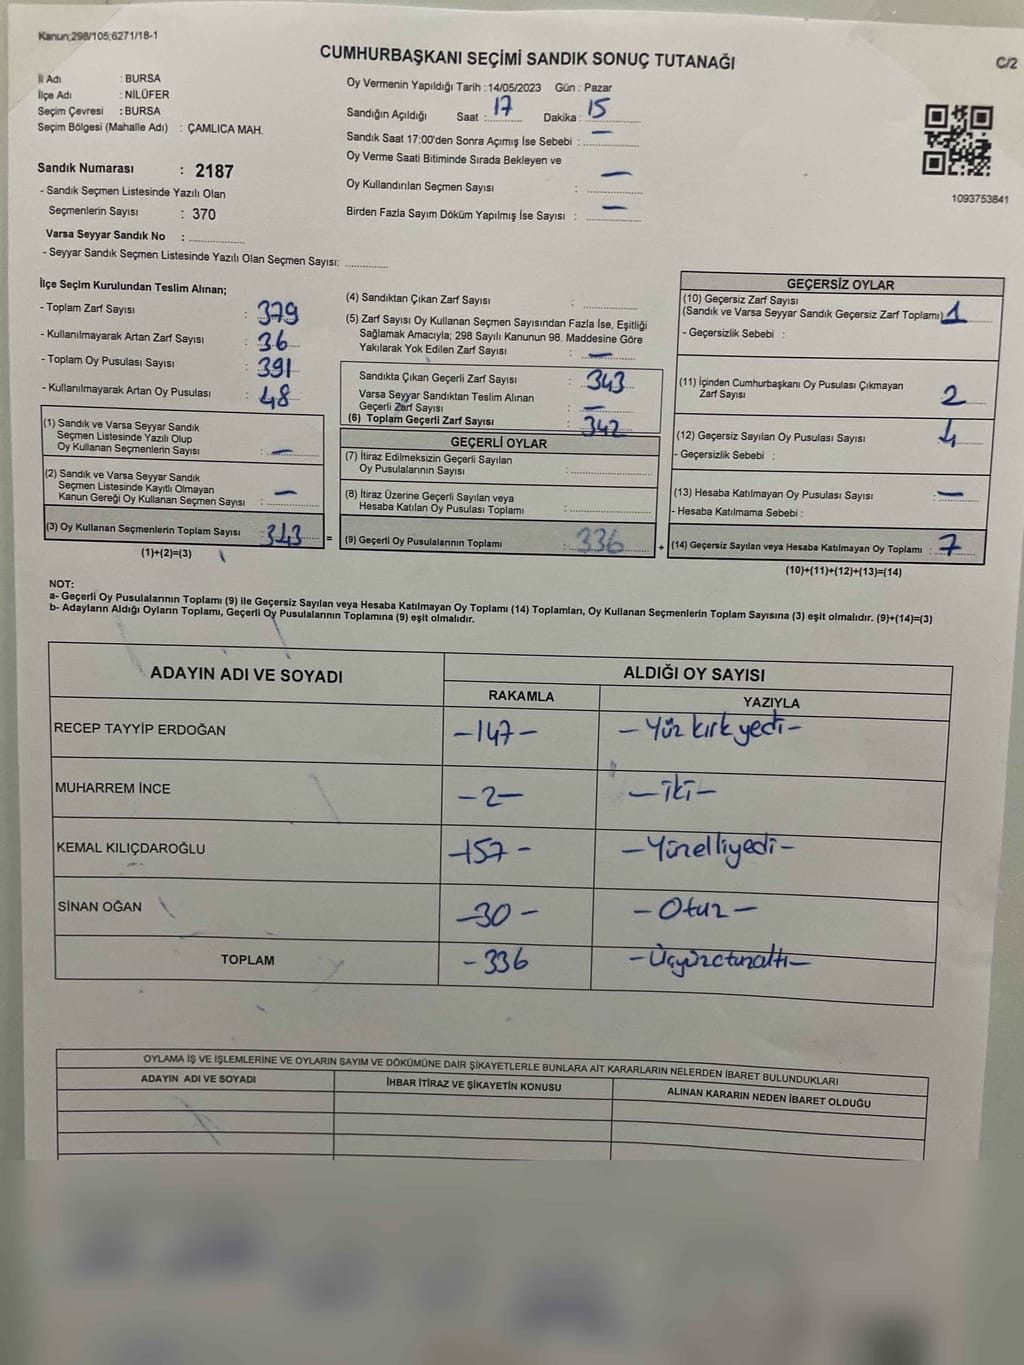 Kanun;298/105;6271/18-1
CUMHURBAŞKANI SEÇİMİ SANDIK SONUÇ TUTANAĞI
C/2
İl Adı : BURSA
İlçe Adı : NİLÜFER
Seçim Çevresi : BURSA
Seçim Bölgesi (Mahalle Adı) : ÇAMLICA MAH.
Sandık Numarası : 2187
- Sandık Seçmen Listesinde Yazılı Olan
Seçmenlerin Sayısı : 370
Varsa Seyyar Sandık No : ..............
- Seyyar Sandık Seçmen Listesinde Yazılı Olan Seçmen Sayısı: ............
Oy Vermenin Yapıldığı Tarih :14/05/2023 Gün : Pazar
Sandığın Açıldığı Saat : 17 Dakika : 15
Sandık Saat 17:00'den Sonra Açımış İse Sebebi : —
Oy Verme Saati Bitiminde Sırada Bekleyen ve
Oy Kullandırılan Seçmen Sayısı : —
Birden Fazla Sayım Döküm Yapılmış İse Sayısı : —
1093753841
İlçe Seçim Kurulundan Teslim Alınan;
- Toplam Zarf Sayısı : 379
- Kullanılmayarak Artan Zarf Sayısı : 36
- Toplam Oy Pusulası Sayısı : 391
- Kullanılmayarak Artan Oy Pusulası : 48
(1) Sandık ve Varsa Seyyar Sandık
Seçmen Listesinde Yazılı Olup
Oy Kullanan Seçmenlerin Sayısı : —
(2) Sandık ve Varsa Seyyar Sandık
Seçmen Listesinde Kayıtlı Olmayan
Kanun Gereği Oy Kullanan Seçmen Sayısı : —
(3) Oy Kullanan Seçmenlerin Toplam Sayısı : 343 =
(1)+(2)=(3)
(4) Sandıktan Çıkan Zarf Sayısı : ..............
(5) Zarf Sayısı Oy Kullanan Seçmen Sayısından Fazla İse, Eşitliği
Sağlamak Amacıyla; 298 Sayılı Kanunun 98. Maddesine Göre
Yakılarak Yok Edilen Zarf Sayısı : —
Sandıkta Çıkan Geçerli Zarf Sayısı : 343
Varsa Seyyar Sandıktan Teslim Alınan
Geçerli Zarf Sayısı : —
(6) Toplam Geçerli Zarf Sayısı : 342
GEÇERLİ OYLAR
(7) İtiraz Edilmeksizin Geçerli Sayılan
Oy Pusulalarının Sayısı : ..............
(8) İtiraz Üzerine Geçerli Sayılan veya
Hesaba Katılan Oy Pusulası Toplamı : ..............
(9) Geçerli Oy Pusulalarının Toplamı : 336 +
GEÇERSİZ OYLAR
(10) Geçersiz Zarf Sayısı
(Sandık ve Varsa Seyyar Sandık Geçersiz Zarf Toplamı) 1
- Geçersizlik Sebebi :
(11) İçinden Cumhurbaşkanı Oy Pusulası Çıkmayan
Zarf Sayısı 2
(12) Geçersiz Sayılan Oy Pusulası Sayısı 4
- Geçersizlik Sebebi :
(13) Hesaba Katılmayan Oy Pusulası Sayısı : —
- Hesaba Katılmama Sebebi :
(14) Geçersiz Sayılan veya Hesaba Katılmayan Oy Toplamı : 7
(10)+(11)+(12)+(13)=(14)
NOT:
a- Geçerli Oy Pusulalarının Toplamı (9) ile Geçersiz Sayılan veya Hesaba Katılmayan Oy Toplamı (14) Toplamları, Oy Kullanan Seçmenlerin Toplam Sayısına (3) eşit olmalıdır. (9)+(14)=(3)
b- Adayların Aldığı Oyların Toplamı, Geçerli Oy Pusulalarının Toplamına (9) eşit olmalıdır.
ADAYIN ADI VE SOYADI ALDIĞI OY SAYISI
RAKAMLA YAZIYLA
RECEP TAYYİP ERDOĞAN -147- -Yüz kırk yedi-
MUHARREM İNCE -2- -iki-
KEMAL KILIÇDAROĞLU -157- -Yüzelliyedi-
SİNAN OĞAN -30- -Otuz-
TOPLAM -336 -Üçyüzotuzaltı-
OYLAMA İŞ VE İŞLEMLERİNE VE OYLARIN SAYIM VE DÖKÜMÜNE DAİR ŞİKAYETLERLE BUNLARA AİT KARARLARIN NELERDEN İBARET BULUNDUKLARI
ADAYIN ADI VE SOYADI İHBAR İTİRAZ VE ŞİKAYETİN KONUSU ALINAN KARARIN NEDEN İBARET OLDUĞU